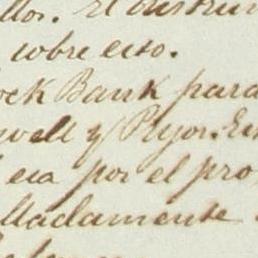 llos. El instru
sobre esto.
ock Bank para
well y Pryor. En
era por el pro
lladamente